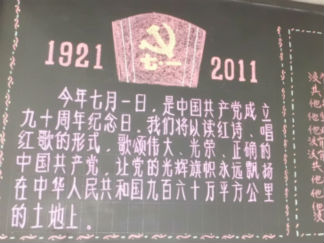 1921 七·一 2011
今年七月一日,是中国共产党成立
九十周年纪念日,我们将以读红诗、唱
红歌的形式,歌颂伟大、光荣、正确的
中国共产党,让党的光辉旗帜永远飘扬
在中华人民共和国九百六十万平方公里
的土地上。
没
其
他